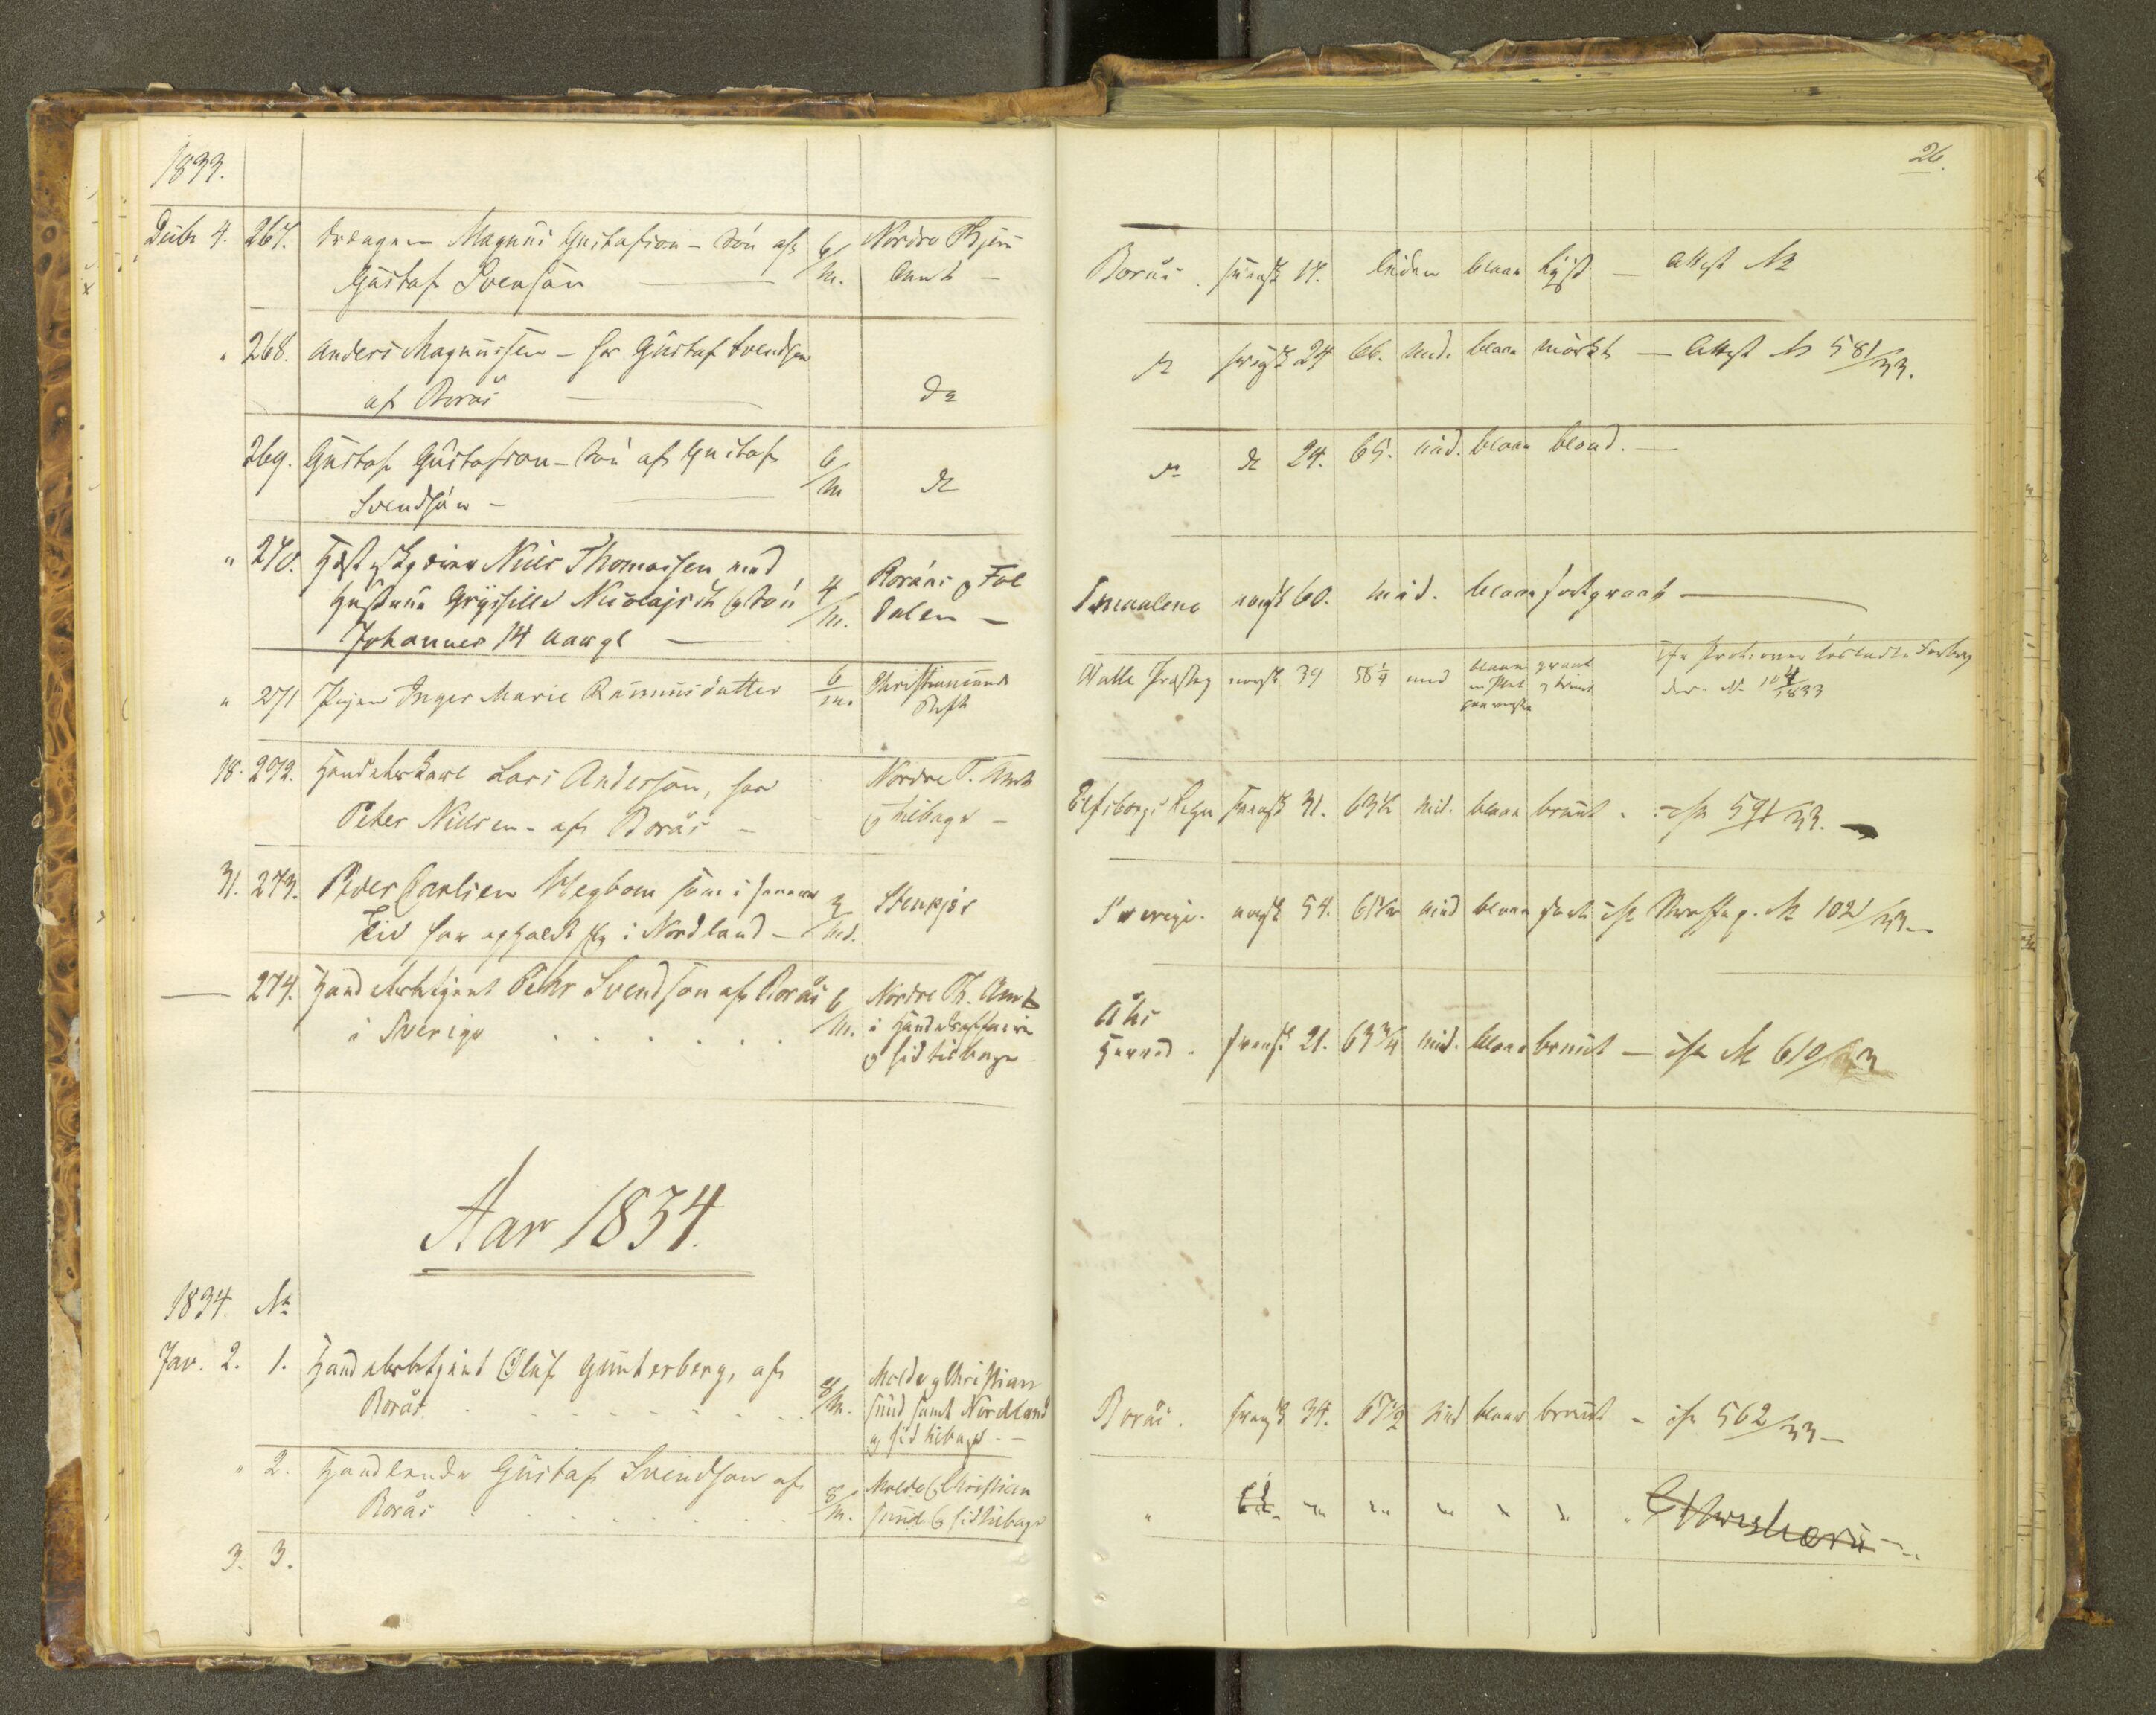 1833.
26.
Decbr 4. 267. Drengen Magnus Gustafson - Søn af
Gustaf Svensøn
6/M.
Nordre Thjem
Amt -
Borås. svensk 17. liden blaae lyst - Attest No
" 268. Anders Magnussen - for Gustaf Svendsen
af Borås
do
do svensk 24 66. mid. blaae mörkt - Attest No 581/33.
269. Gustaf Gustafson - Søn af Gustaf
Svendsøn -
6/M
do
do do 24. 65. mid. blaae blond. -
" 270. Niels Thomassen med
Hustrue Nicolajsdr og Søn
Johannes 14 Aar gl
4/M.
Roråas og Fol
dalen -
Smaalene norsk 60. mid. blaae sortgraat -
" 271 Pigen Inger Marie Rasmusdatter
6/M.
Christiansunds
Walle Præstegj norsk 39 58 1/4 mid blaae graat
No 104/1833
18. 272. Handelskarl Lars Andersson, for
Peter Nilsen - af Borås -
Nordre T. Amt
og tilbage -
Elfsborgs Lehn svensk 31. 63 1/2 mid. blaae bruunt - 591/33. -
31. 273. Peder Carlsen Wegbom som i senere
Tid har opholdt sig i Nordland -
3/Md.
Stenkjær
Sverige. norsk 54. 61 1/2 mid blaae No 102/33 -
- 274. Handelsbetjent Pehr Svendson af Borås
i Sverige . . . . . .
6/M.
Nordre Th. Amt
i Handelsaffairer
og hid tilbage
Åhs
Herred. svensk 21. 63 3/4 mid. blaae bruunt - No 610/33
Aar 1834.
1834. No
Jan. 2. 1. Handelsbetjent Oluf Gunterberg, af
Borås. . . . . . . . . .
8/M.
Molde og Christian
sund samt Nordland
og hid tilbage -
Borås. svensk 34. 67 1/2 mid blaae bruunt - 562/33 -
" 2. Handlende Gustaf Svendson af
Borås . . . . . . . .
8/M.
Molde og Christian
sund og hid tilbage
3. 3.